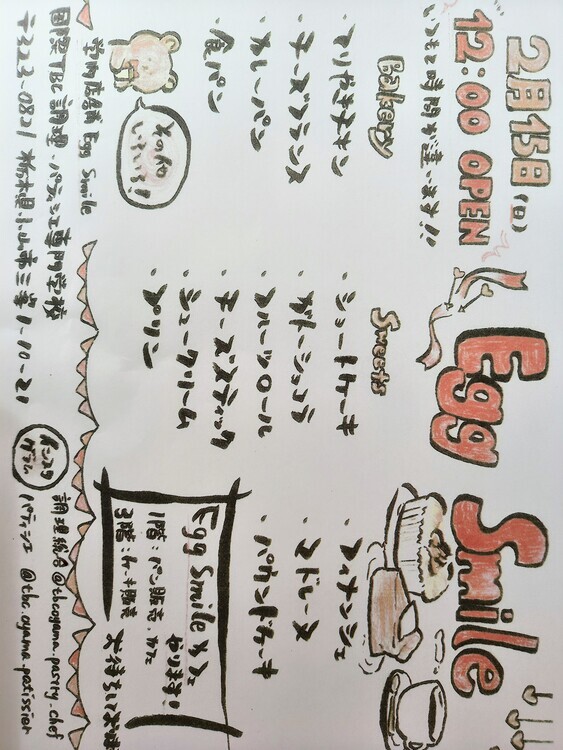 2月15日(日)
12:00 OPEN
いつもと時間が違います!!
Egg Smile
Bakery
・てりやきチキン
・チーズフランス
・カレーパン
・食パン
Sweets
・ショートケーキ
・ガトーショコラ
・フルーツロール
・チーズスティック
・シュークリーム
・プリン
・フィナンシェ
・マドレーヌ
・パウンドケーキ
Egg Smile カフェ
やります!
1階:パン販売、カフェ
3階:ケーキ販売
学内店舗 Egg Smile
国際TBC調理・パティシエ専門学校
〒323-0821 栃木県小山市三峯1-10-21
インスタグラム
調理総合@tbcoyama.pastry_chef
パティシエ @tbc.oyama.patissier